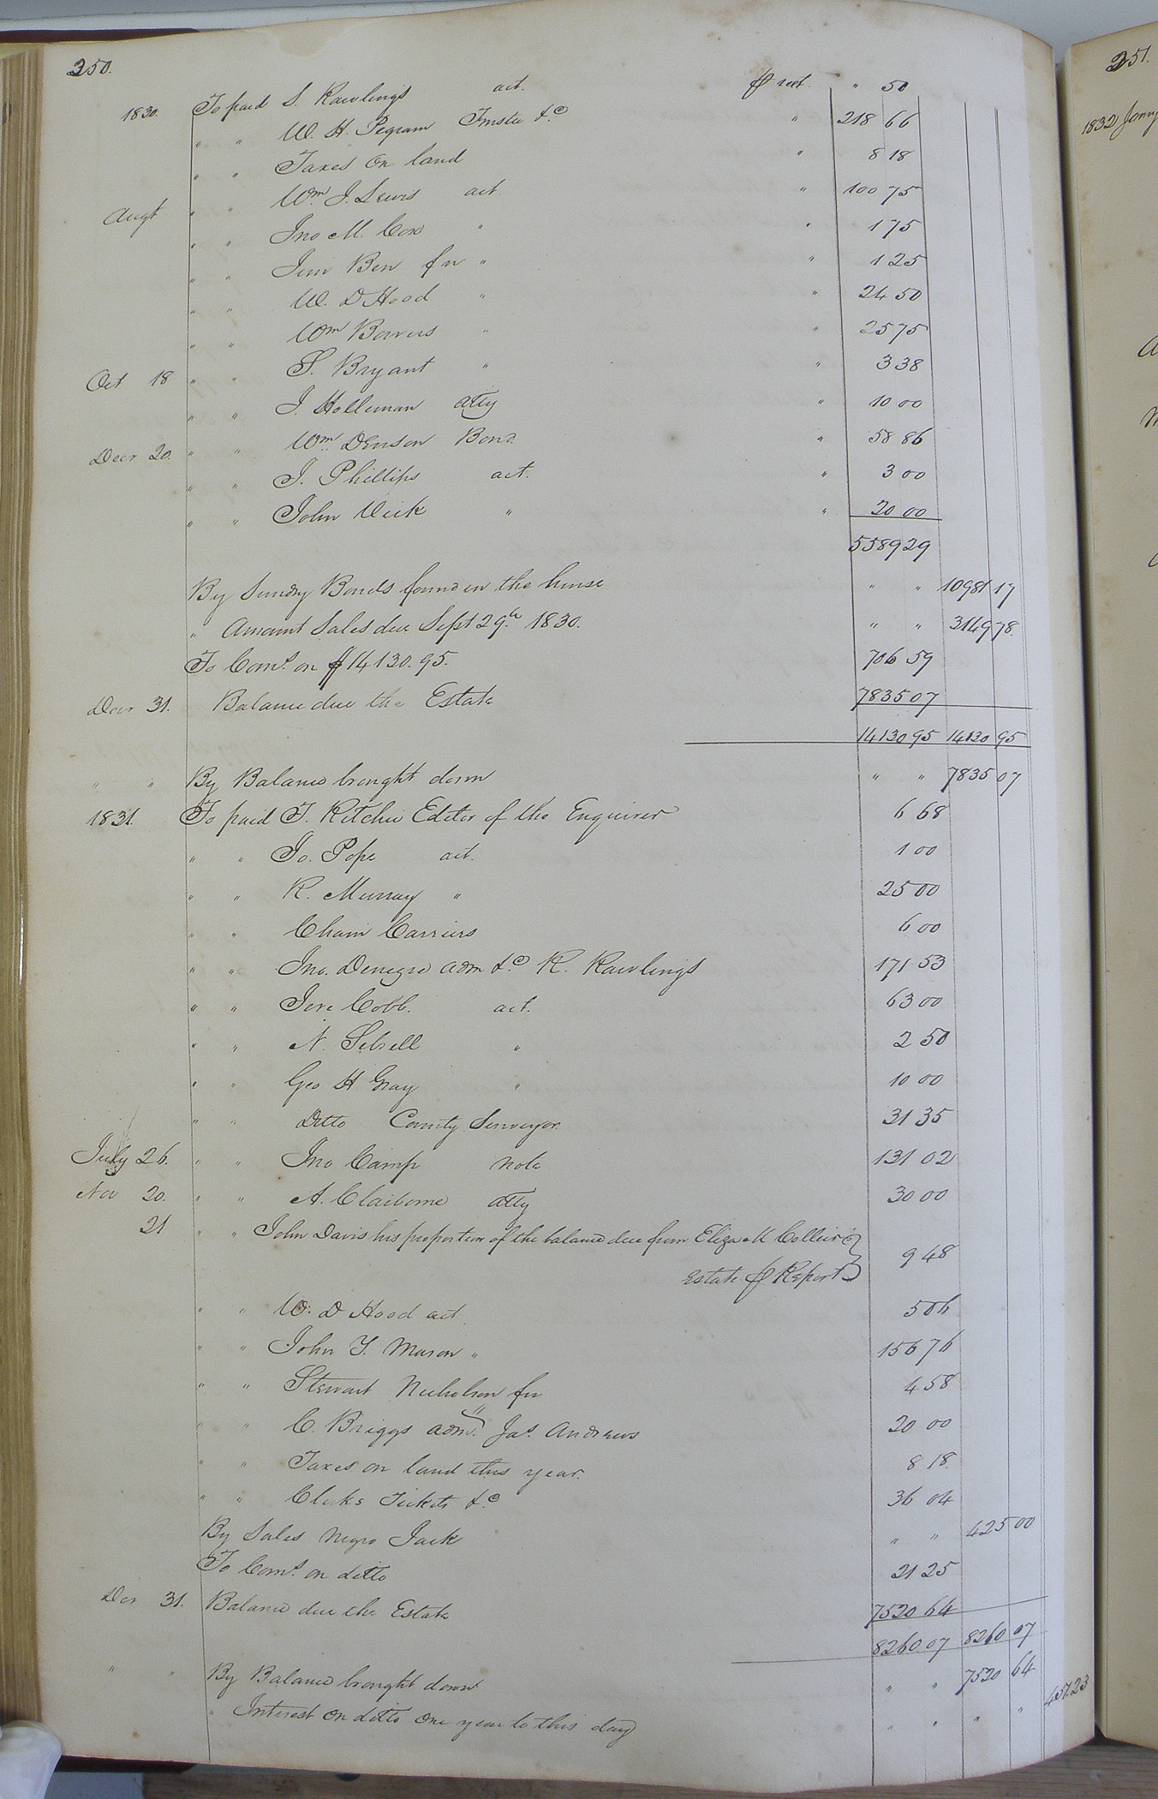 250.
1830. To paid S. Rawlings act. ℔ rect. " 50
" " W. H. Pegram Trustee &c " 218 66
" " Taxes on land " 8 18
Augt " " Wm J. Lewis act. " 100 75
" " Jno M. Cox " " 1 75
" " Jim Ben fn " " 1 25
" " W. D Hood " " 24 50
" " Wm Bowers " " 25 75
Oct 18 " " S. Bryant " " 3 38
" " J. Holleman atty " 10 00
Decr 20. " " Wm Denson Bond " 58 86
" " J. Phillips act. " 3 00
" " John Vick " " 20 00
5589 29
By Sundry Bonds found in the house " " 10981 17
" Amount Sales due Sept 29th 1830. " " 3149 78
To Coms on $14130.95. 706 59
Decr 31. Balance due the Estate 7835 07
14130 95 14130 95
" " By Balance brought down " " 7835 07
1831. To paid T. Ritchie Editor of the Enquirer 6 68
" " Jo. Pope act. 1 00
" " R. Murray " 25 00
" " Chain Carriers 6 00
" " Jno. Denegre adm &c R. Rawlings 171 53
" " Jere Cobb. act. 63 00
" " N. Sebrell " 2 50
" " Geo H Gray " 10 00
" " Ditto County Surveyor 31 35
July 26. " " Jno Camp note 131 02
Nov 20. " " A. Claiborne atty 30 00
21 " " John Davis his proportion of the balance due from Eliza M Collier
Estate ℔ Report 9 48
" " W. D Hood act 5 06
" " John Y. Mason " 156 76
" " Stewart Nicholson fn 4 58
" " C. Briggs adm. Jas. Andrews 20 00
" " Taxes on land this year. 8 18
" " Clerks Tickets &c 36 04
By Sales negro Jack " " 425 00
To Coms on ditto 21 25
Dec 31. Balance due the Estate 7520 64
8260 07 8260 07
" " By Balance brought down " " 7520 64
" Interest on ditto one year to this day " " " " 451 23
251.
1832 Jany